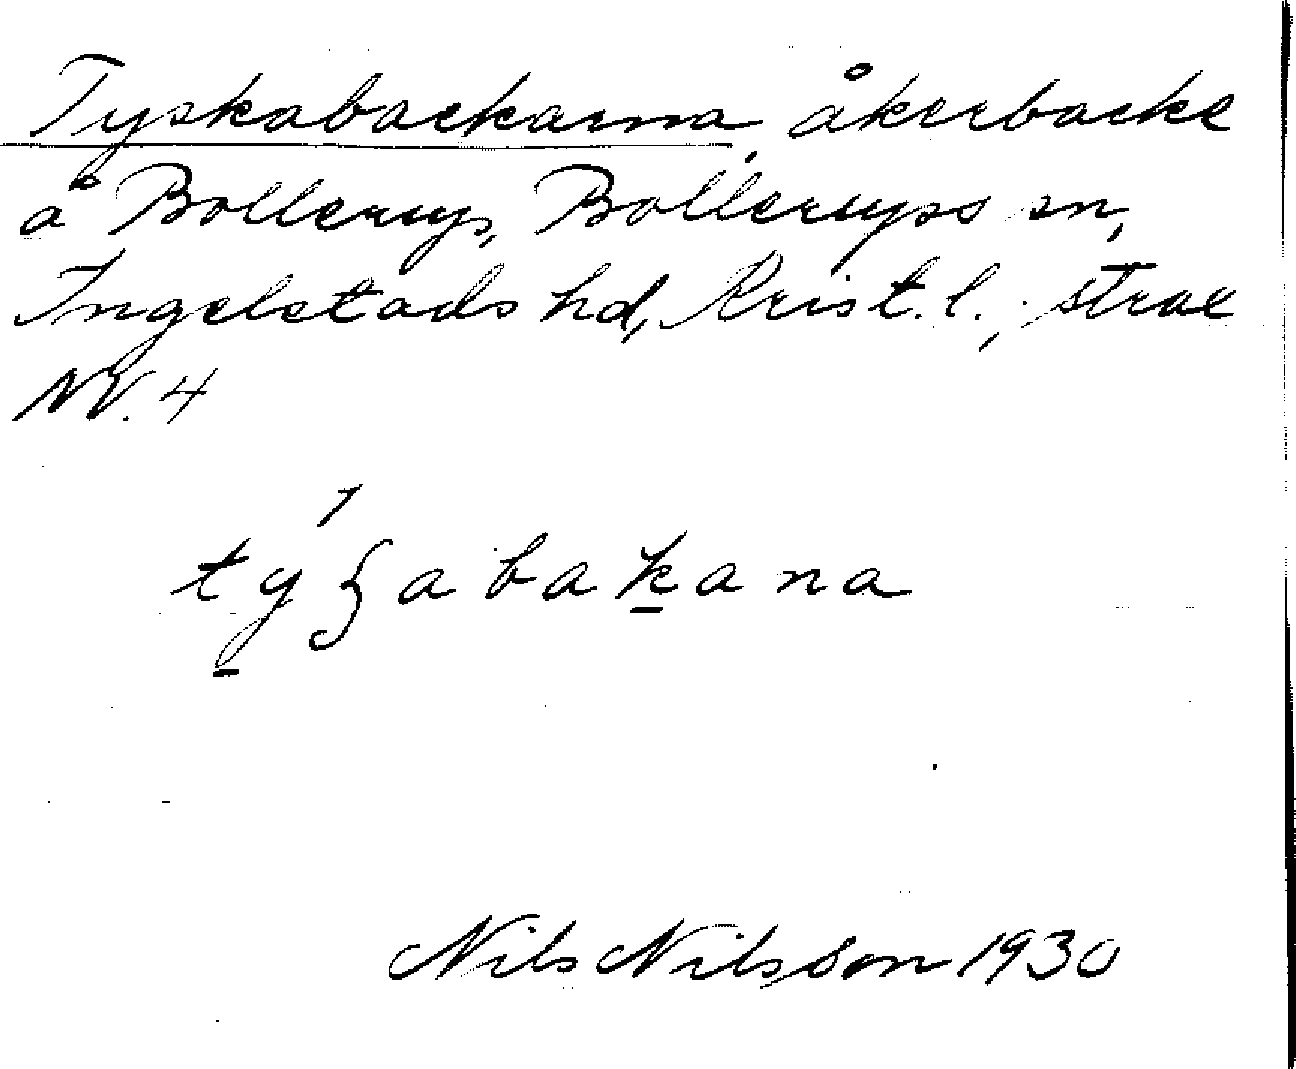 Tyskabackarna, åkerbacke
å Bollerup, Bollerups sn,
Ingelstads hd, Krist. l., strax
NV. 4
Nils Nilsson 1930